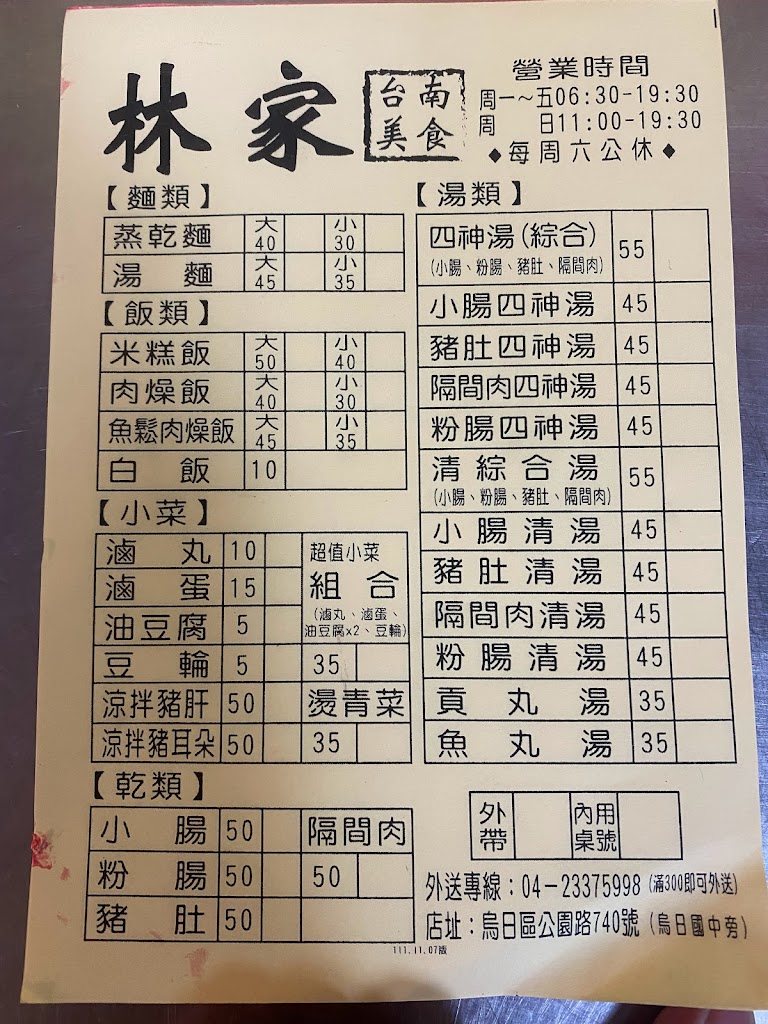 林家
台南
美食
營業時間
周一～五06:30-19:30
周　日11:00-19:30
◆每周六公休◆
【麵類】
蒸乾麵 大40 小30
湯麵 大45 小35
【飯類】
米糕飯 大50 小40
肉燥飯 大40 小30
魚鬆肉燥飯 大45 小35
白飯 10
【小菜】
滷丸 10
滷蛋 15
油豆腐 5
豆輪 5
涼拌豬肝 50
涼拌豬耳朵 50
超值小菜
組合
(滷丸、滷蛋、
油豆腐x2、豆輪)
35
燙青菜
35
【乾類】
小腸 50
粉腸 50
豬肚 50
隔間肉
50
【湯類】
四神湯(綜合) 55
(小腸、粉腸、豬肚、隔間肉)
小腸四神湯 45
豬肚四神湯 45
隔間肉四神湯 45
粉腸四神湯 45
清綜合湯 55
(小腸、粉腸、豬肚、隔間肉)
小腸清湯 45
豬肚清湯 45
隔間肉清湯 45
粉腸清湯 45
貢丸湯 35
魚丸湯 35
外帶
內用桌號
外送專線：04-23375998(滿300即可外送)
店址：烏日區公園路740號(烏日國中旁)
111.11.07版